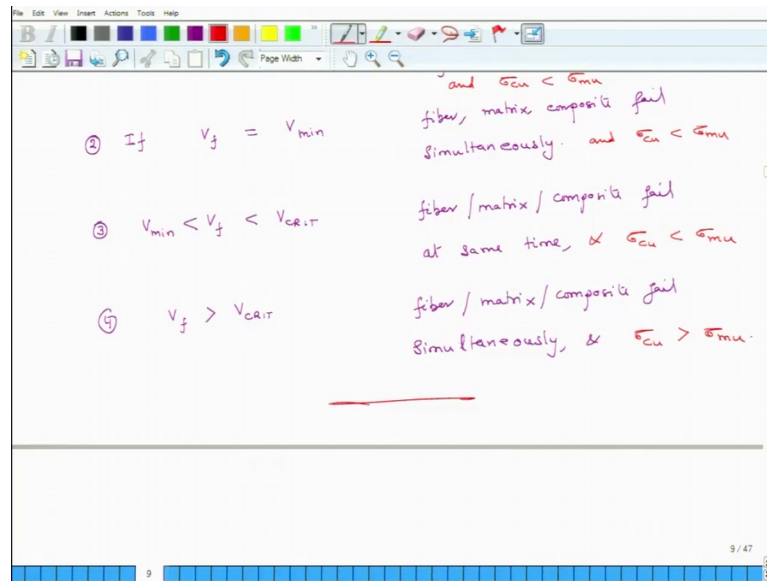 File Edit View Insert Actions Tools Help
B I
Page Width
and σcu < σmu
② If Vf = Vmin
fiber, matrix composite fail
simultaneously. and σcu < σmu
③ Vmin < Vf < VCRIT
fiber / matrix / composite fail
at same time, & σcu < σmu
④ Vf > VCRIT
fiber / matrix / composite fail
simultaneously, & σcu > σmu.
9 / 47
9